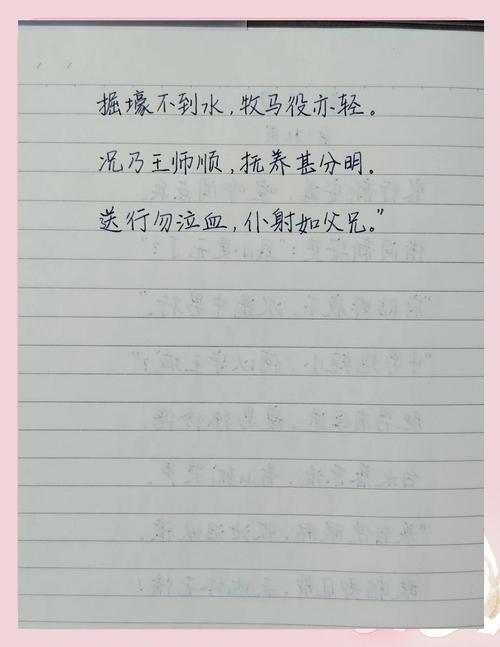 掘壕不到水，牧马役亦轻。
况乃王师顺，抚养甚分明。
送行勿泣血，仆射如父兄。”